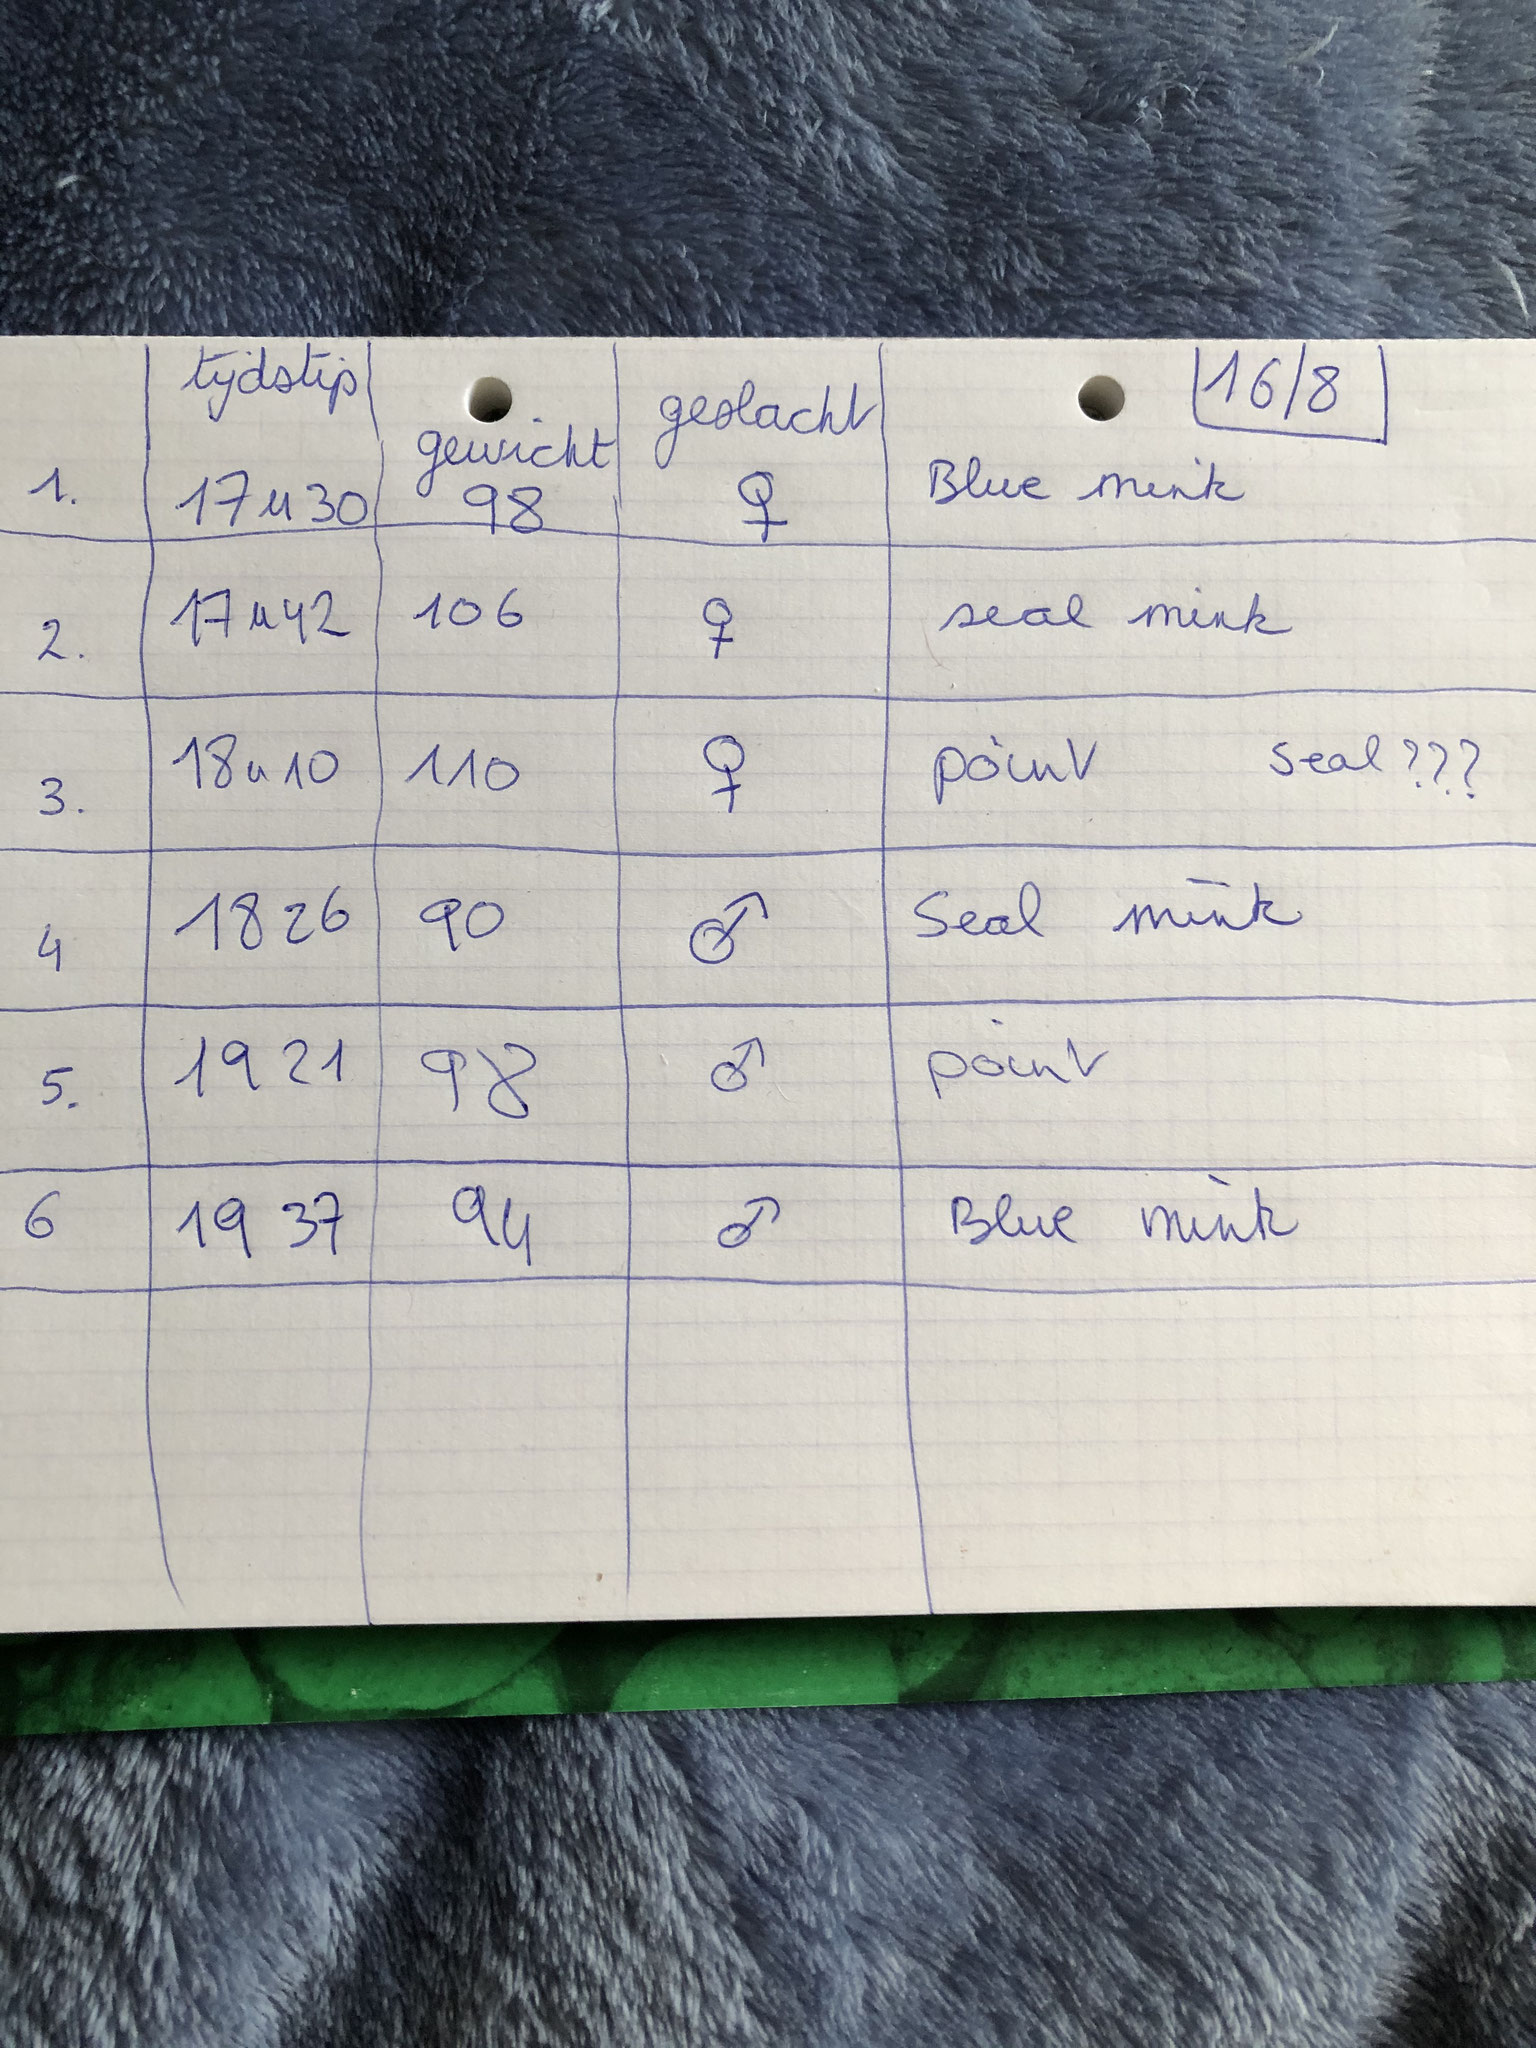 tijdstip gewicht geslacht 16/8
1. 17u30 98 ♀ Blue mink
2. 17u42 106 ♀ seal mink
3. 18u10 110 ♀ point seal???
4 18 26 90 ♂ Seal mink
5. 19 21 98 ♂ point
6 19 37 94 ♂ Blue mink